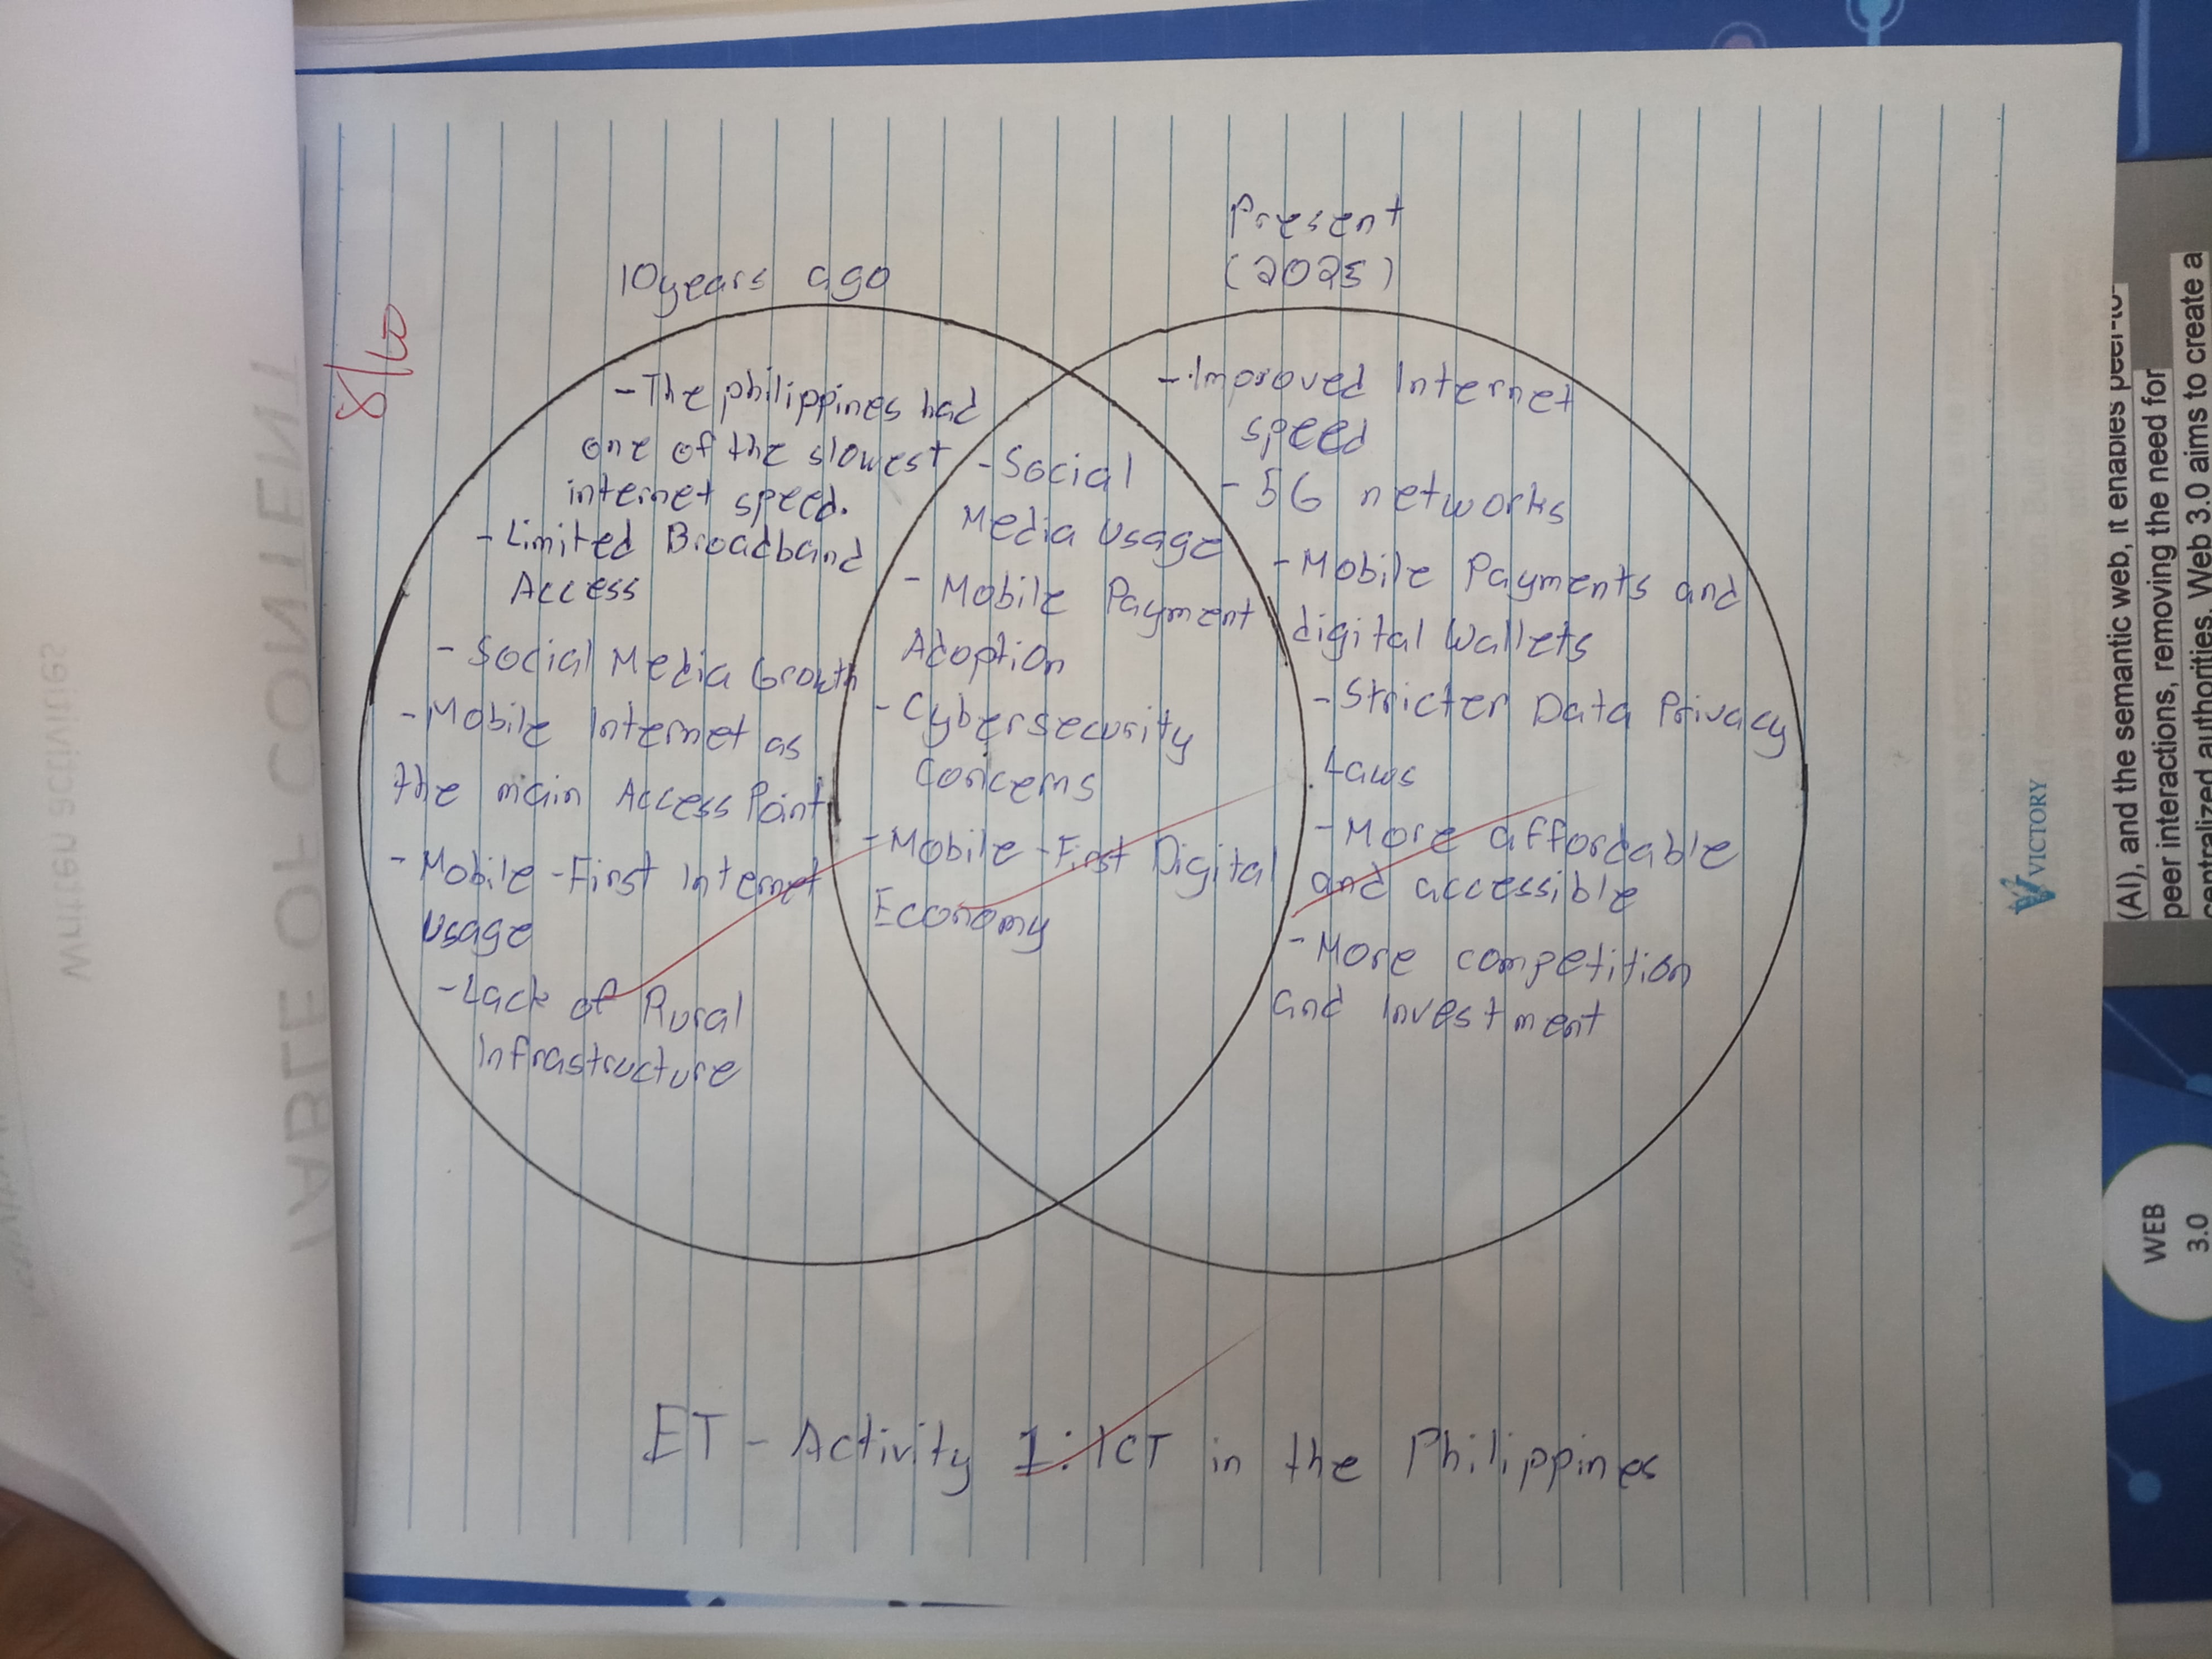 10years ago
Present
(2025)
8/10
-The philippines had
one of the slowest
internet speed.
-Limited Broadband
Access
-Social Media Growth
-Mobile Internet as
the main Access Point
-Mobile-First Internet
Usage
-Lack of Rural
Infrastructure
-Social
Media Usage
-Mobile Payment
Adoption
-Cybersecurity
Concerns
-Mobile-First Digital
Economy
-Improved Internet
speed
-5G networks
-Mobile Payments and
digital Wallets
-Stricter Data Privacy
Laws
-More affordable
and accessible
-More competition
and Investment
ET-Activity 1: ICT in the Philippines
VICTORY
(AI), and the semantic web, it enables peer-to-
peer interactions, removing the need for
centralized authorities. Web 3.0 aims to create a
WEB
3.0
TABLE OF CONTENT
Written activities